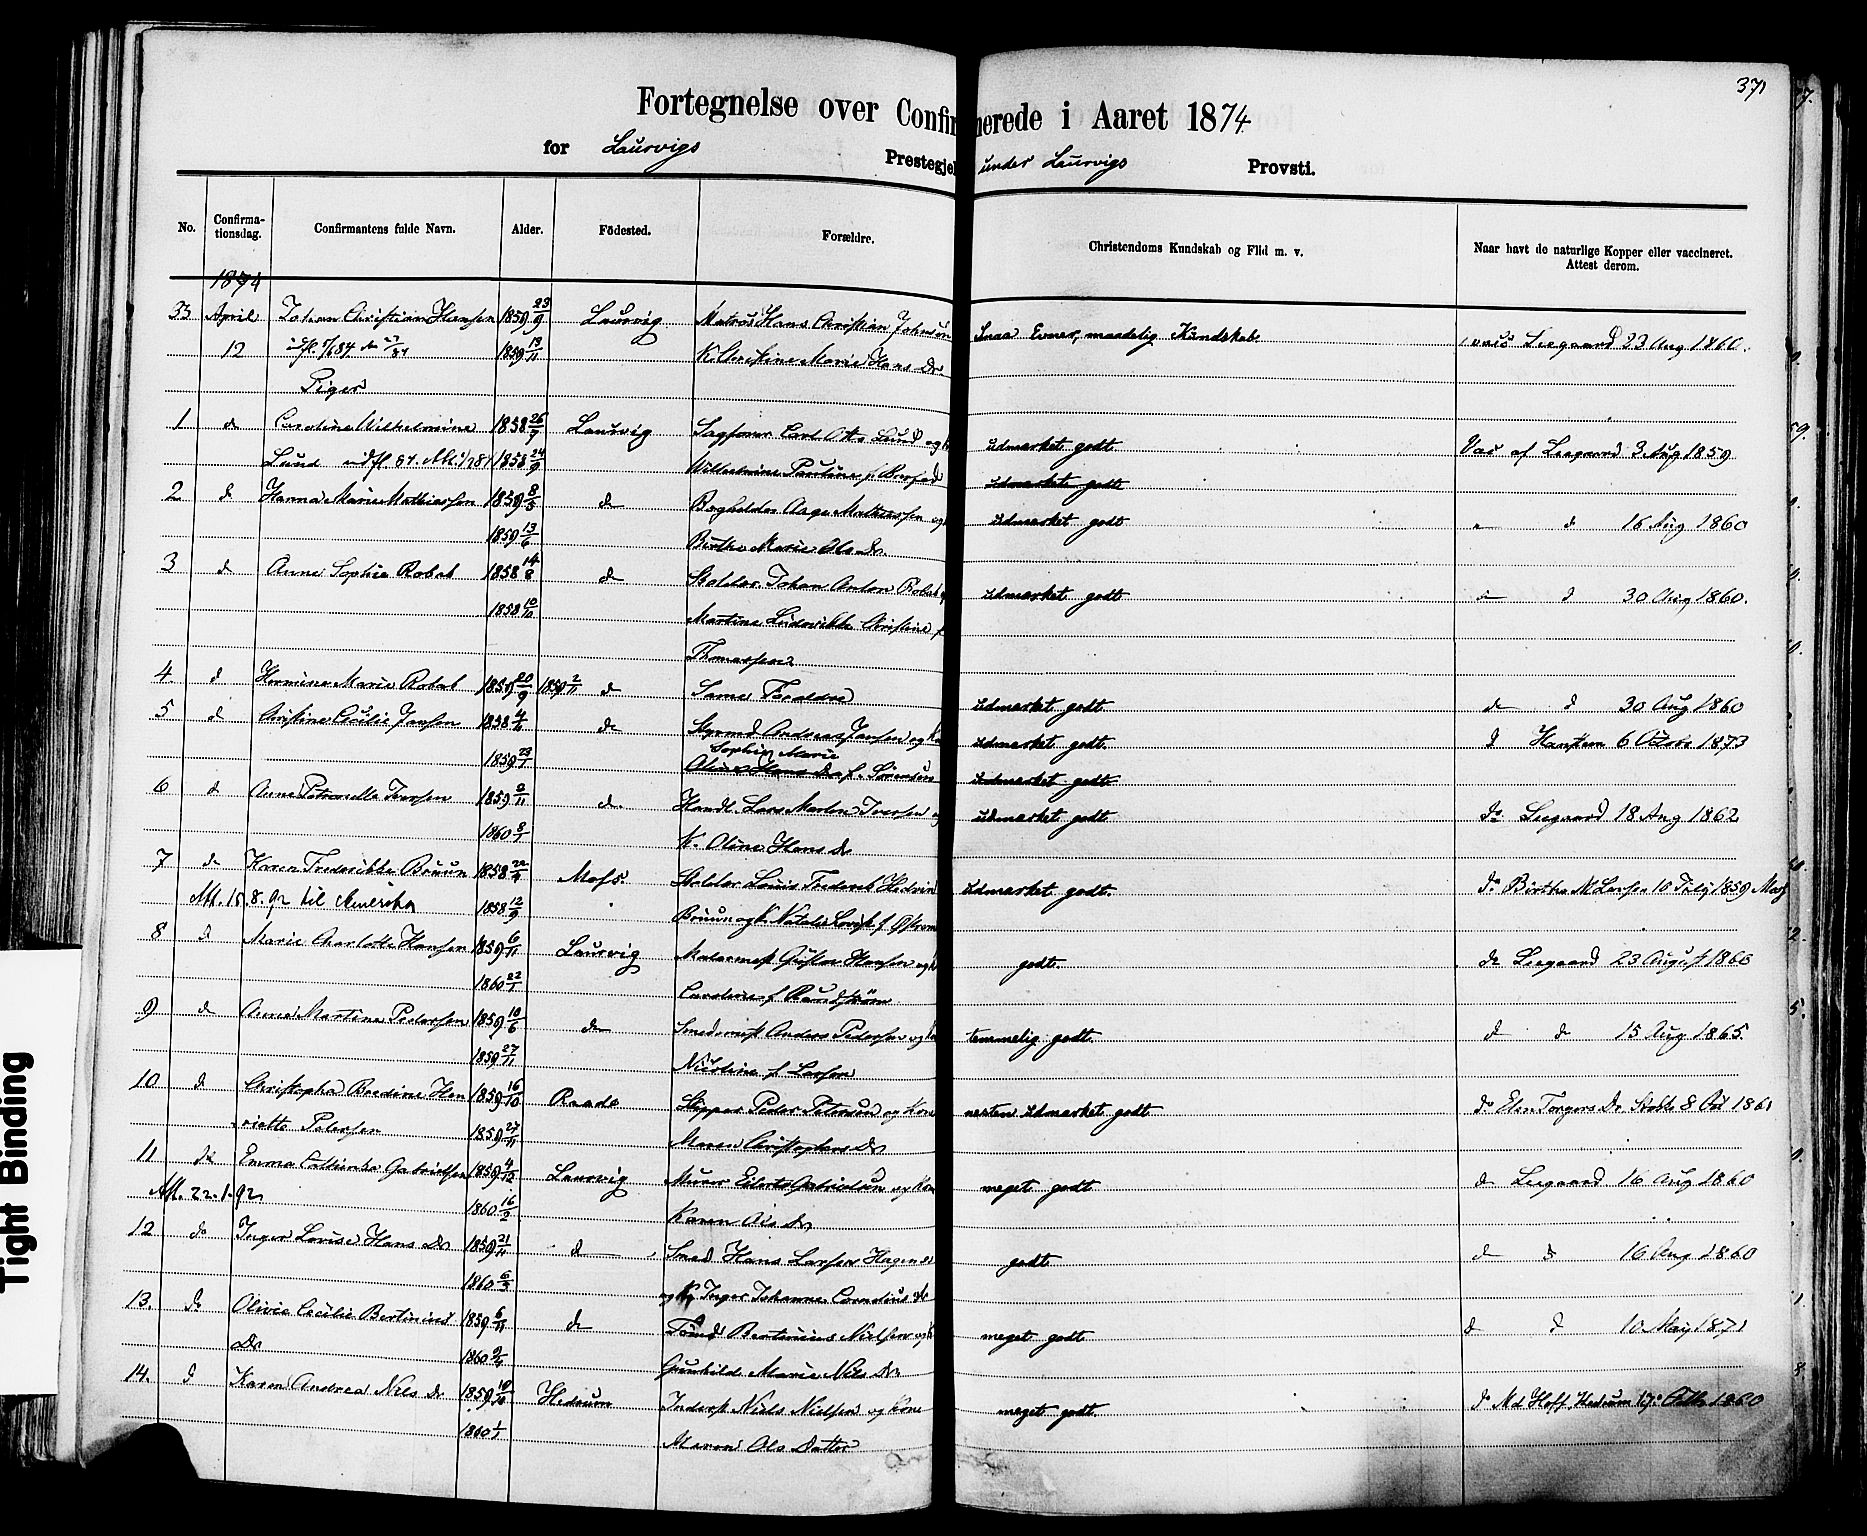 371
Fortegnelse over Confirmerede i Aaret 1874
for Laurvigs Prestegjel under Laurvigs Provsti.
No. Confirma-tionsdag. Confirmantens fulde Navn. Alder. Födested. Forældre. Christendoms Kundskab og Flid m. v. Naar havt de naturlige Kopper eller vaccineret. Attest derom.
1874
33 April Johan Christian Hansen 1859 23/9 Laurvig Matros Hans Christian Johnsen Smaa Evner, maadelig Kundskab vacc Seegaard 23 Aug 1860.
12 1859 13/11 K. Christine Marie Hans Dr.
Piger
1 do Caroline Wilhelmine 1858 26/7 Laurvig Sagfører Carl Otto Lund og udmærket godt Vac af Seegaard 3 Aug 1859
Lund 1858 24/9 Wilhelmine Pauline f. udmærket godt
2 d Hanna Marie Mathiessen 1859 8/3 d Aage Mathiessen og udmærket godt d 16 Aug 1860
1859 13/6 Birthe Marie Ols Dr
3 d Anne Sophie Robak 1858 14/8 d Skolelær. Johan Anton Robak udmærket godt d 30 Aug 1860.
1858 10/10 Martine Ludovikke Christine f
Thomassen
4 d Hermine Marie Robak 1859 20/9 1859 2/11 d Samme Forældre udmærket godt do d 30 Aug 1860
5 d Christine Cecilie Jansen 1858 4/6 d Styrmd Andreas Jansen og udmærket godt. d 6 Octobr 1873
Sophie Marie
1859 23/1 Hans Dr f. Sørensen udmærket godt
6 d Anne Petronelle Iversen 1859 2/11 d. Handl. Lars Morten Iversen og udmærket godt do Seegaard 18 Aug 1862
1860 8/1 K. Oline Hans Dr
7 do Karen Frederikke Bruun 1858 22/4 Moss. Skolelær Louis Frederik Bruun udmærket godt. do Birthe M Larsen 10 July 1859 Moss
Aft. 15.8.92 til Amerika 1858 12/9 Bruun og K.
8 d Marie Charlotte Hansen 1859 6/11 Laurvig Malermest Gustav Hansen og godt. do Seegaard 23 August 1860
1860 22/1 Caroline f Randstrøm
9 do Anne Martine Pedersen 1859 10/6 do Smedmest Anders Pedersen og temmelig godt. d d 15 Aug 1865.
1859 27/11 Nicoline f Larsen
10 d Christopha Bredine Hen 1859 16/10 Raade Skipper Peder Petersen og Kone nesten udmærket godt do Elen Torgers Dr 8 Oct 1861
riette Petersen 1859 27/11 Maren Christophers Dr
11 do Emma Cathinka Gabrielsen 1859 4/12 Laurvig Murer Eilert Gabrielsen og Kone meget godt d Seegaard 16 Aug 1860
Aft. 22.1.92 1860 16/2 Karen Dr
12 do Inger Lovise Hans Dr 1859 21/11 d Smed Hans Larsen Hagen godt d d 16 Aug 1860
1860 6/3 og K Inger Johanne Cornelius Dr
13. do Olivie Cecilie Bertinius 1859 6/11 d Tømd Bertinius Nielsen og K meget godt d d 10 May 1871
Dr 1860 9/4 Gunhild Marie Nils Dr.
14. d Karen Andrea Nils Dr 1859 10/10 Hedrum Inderst Niels Nielsen og Kone meget godt. do Md Hoff Hedrum 17 1860
1860 1/1 Maren Ols Datter
Tight Binding